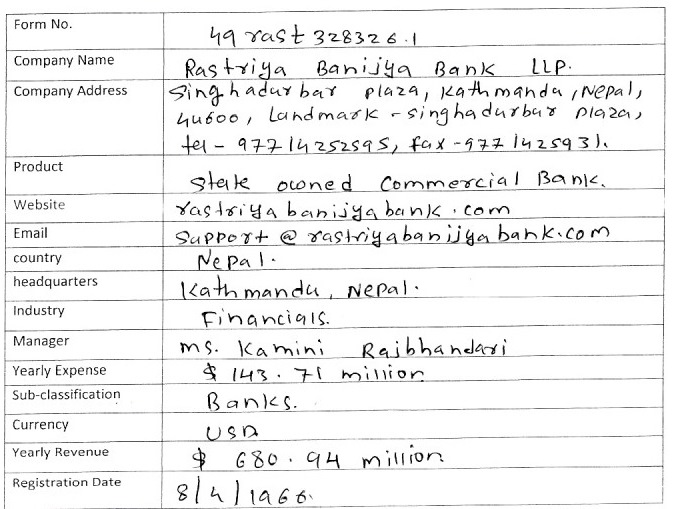 Form No. 49rast328326.1
Company Name Rastriya Banijya Bank LLP.
Company Address Singhadurbar plaza, Kathmandu, Nepal,
44600, Landmark - singhadurbar plaza,
tel - 97714252595, fax - 97714259 31.
Product State owned Commercial Bank.
Website rastriyabanijyabank.com
Email Support@rastriyabanijyabank.com
country Nepal.
headquarters Kathmandu, Nepal.
Industry Financials.
Manager ms. Kamini Rajbhandari
Yearly Expense $ 143.71 million
Sub-classification Banks.
Currency USD
Yearly Revenue $ 680.94 million
Registration Date 8/4/1966.